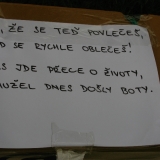 , ŽE SE TEĎ POVLEČEŠ,
SE RYCHLE OBLEČEŠ!
JDE PŘECE O ŽIVOTY,
DNES DOŠLY BOTY.